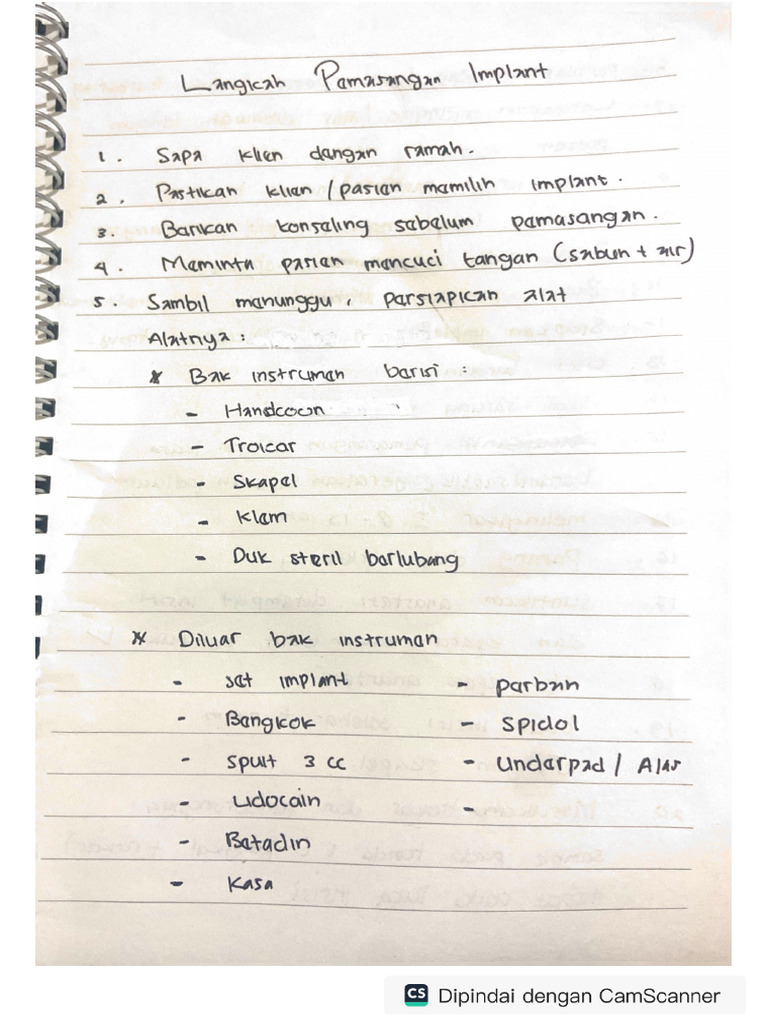 Langkah Pemasangan Implant
1. Sapa klien dengan ramah.
2. Pastikan klien / pasien memilih implant.
3. Berikan konseling sebelum pemasangan.
4. Meminta pasien mencuci tangan (sabun + air)
5. Sambil menunggu, persiapkan alat
Alatnya :
* Bak instrumen berisi :
- Handcoon
- Troicar
- Skapel
- Klem
- Duk steril berlubang
* Diluar bak instrumen
- set implant - perban
- Bengkok - Spidol
- Spuit 3 cc - Underpad / Alas
- Lidocain -
- Betadin
- Kasa
CS Dipindai dengan CamScanner